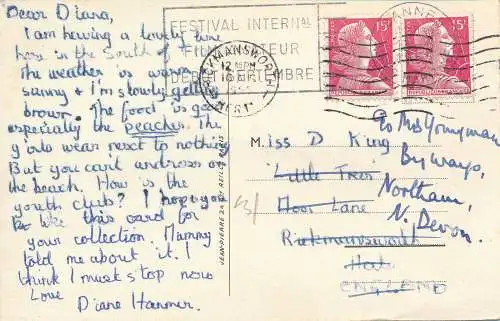 Dear Diana,
I am having a lovely time
here in the South of
The weather is warm
sunny & I'm slowly getting
brown. The food is good
especially the peaches. The
girls wear next to nothing
But you can't undress on
the beach. How is the
youth club? I hope you
like this card for
your collection. Mummy
told me about it. I
think I must stop now
Love
Diane Hanmer.
FESTIVAL INTERNAL
FILM AMATEUR
SEPTEMBRE
CANNES
RICKMANSWORTH
HERTS
12
15F
15F
Miss D King
Little Trees
Moor Lane
Rickmansworth
Herts
ENGLAND
c/o Mrs Youngman
Byways,
Northam,
N. Devon.